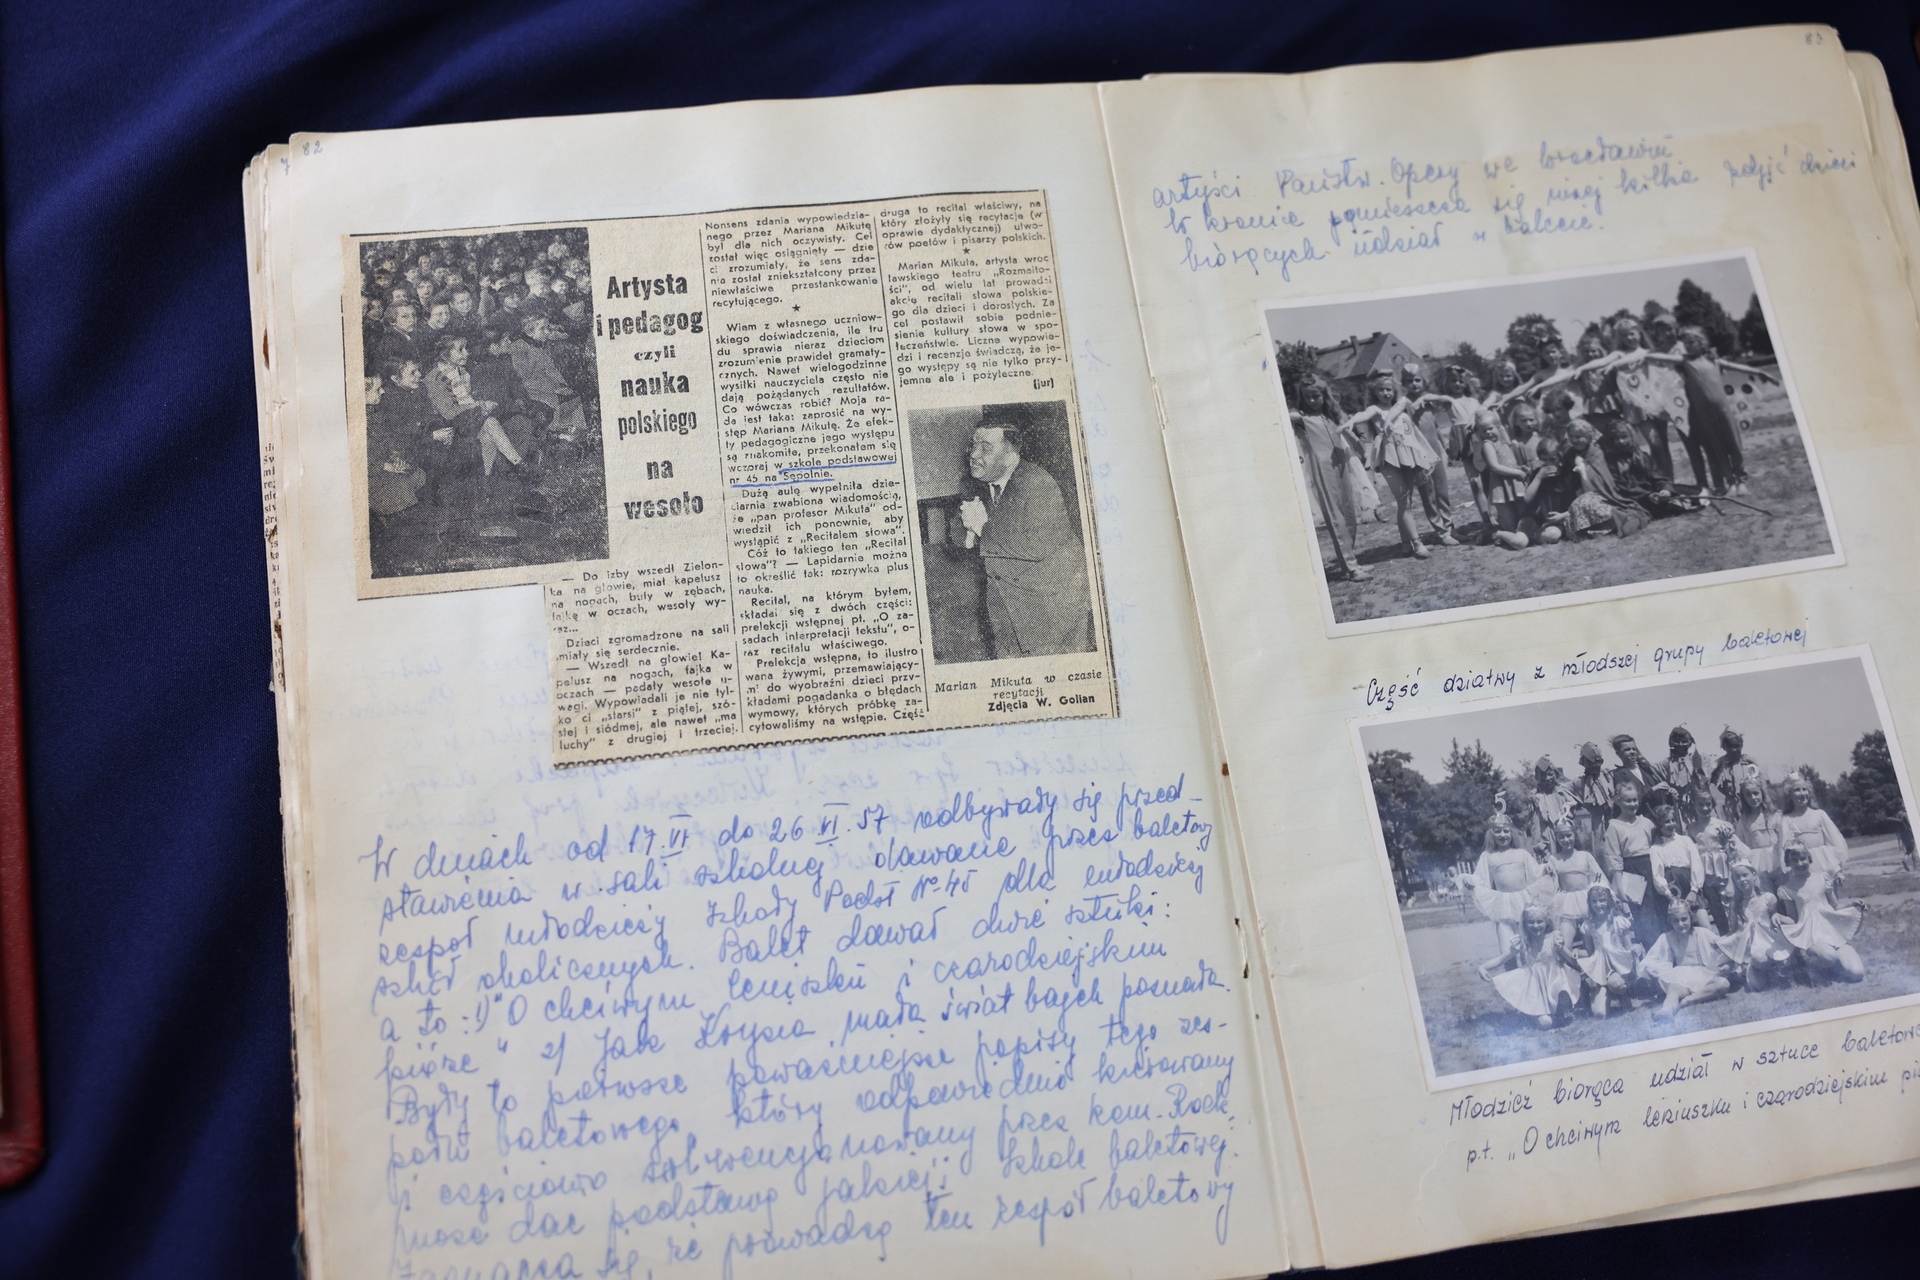 7 82
Artysta
i pedagog
czyli
nauka
polskiego
na
wesoło
— Do izby wszedł Zielon-
ka na głowie, miał kapelusz
na nogach, buty w zębach,
fajkę w oczach, wesoły wy-
raz...
Dzieci zgromadzone na sali
śmiały się serdecznie.
— Wszedł na głowie! Ka-
pelusz na nogach, fajka w
oczach — padały wesołe u-
wagi. Wypowiadali je nie tyl-
ko ci „starsi" z piątej, szó-
stej i siódmej, ale nawet „ma
luchy" z drugiej i trzeciej.
Nonsens zdania wypowiedzia-
nego przez Mariana Mikutę
był dla nich oczywisty. Cel
został więc osiągnięty — dzie
ci zrozumiały, że sens zda-
nia został zniekształcony przez
niewłaściwe przestankowanie
recytującego.
★
Wiem z własnego uczniow-
skiego doświadczenia, ile tru
du sprawia nieraz dzieciom
zrozumienie prawideł gramaty-
cznych. Nawet wielogodzinne
wysiłki nauczyciela często nie
dają pożądanych rezultatów.
Co wówczas robić? Moja ra-
da jest taka: zaprosić na wy-
stęp Mariana Mikutę. Że efek-
ty pedagogiczne jego występu
są znakomite, przekonałem się
wczoraj w szkole podstawowej
nr 45 na Sępolnie.
Dużą aulę wypełniła dzie-
ciarnia zwabiona wiadomością,
że „pan profesor Mikuta" od-
wiedził ich ponownie, aby
wystąpić z „Recitalem słowa".
Cóż to takiego ten „Recital
słowa"? — Lapidarnie można
to określić tak: rozrywka plus
nauka.
Recital, na którym byłem,
składał się z dwóch części:
prelekcji wstępnej pt. „O za-
sadach interpretacji tekstu", o-
raz recitalu właściwego.
Prelekcja wstępna, to ilustro
wana żywymi, przemawiający-
mi do wyobraźni dzieci przy-
kładami pogadanka o błędach
wymowy, których próbkę za-
cytowaliśmy na wstępie. Część
druga to recital właściwy, na
który złożyły się recytacje (w
oprawie dydaktycznej) utwo-
rów poetów i pisarzy polskich.
★
Marian Mikuta, artysta wroc
ławskiego teatru „Rozmaito-
ści", od wielu lat prowadzi
akcję recitali słowa polskie-
go dla dzieci i dorosłych. Za
cel postawił sobie podnie-
sienie kultury słowa w spo-
łeczeństwie. Liczne wypowie-
dzi i recenzje świadczą, że je-
go występy są nie tylko przy-
jemne ale i pożyteczne.
(jur)
Marian Mikuta w czasie
recytacji
Zdjęcia W. Golian
W dniach od 17.VI do 26.VI.57 odbywały się przed-
stawienia w sali szkolnej dawane przez baletowy
zespół młodzieży Szkoły Podst Nº 45 dla młodzieży
szkół okolicznych. Balet dawał dwie sztuki:
a to: 1) "O chciwym leniuszku i czarodziejskim
piórze" 2) Jak Krysia mała świat bajek poznała.
Były to pierwsze poważniejsze popisy tego zes-
połu baletowego, który odpowiednio kierowany
i częściowo subwencjonowany przez kom. Rodz.
może dać podstawę jakiejś szkole baletowej.
Zaznacza się, że prowadzą ten zespół baletowy
83
artyści Państw. Opery we Wrocławiu
W kronice pomieszcza się niżej kilka zdjęć dzieci
biorących udział w balecie.
Część dziatwy z młodszej grupy baletowej
Młodzież biorąca udział w sztuce baletowe
p.t. „O chciwym leniuszku i czarodziejskim pi